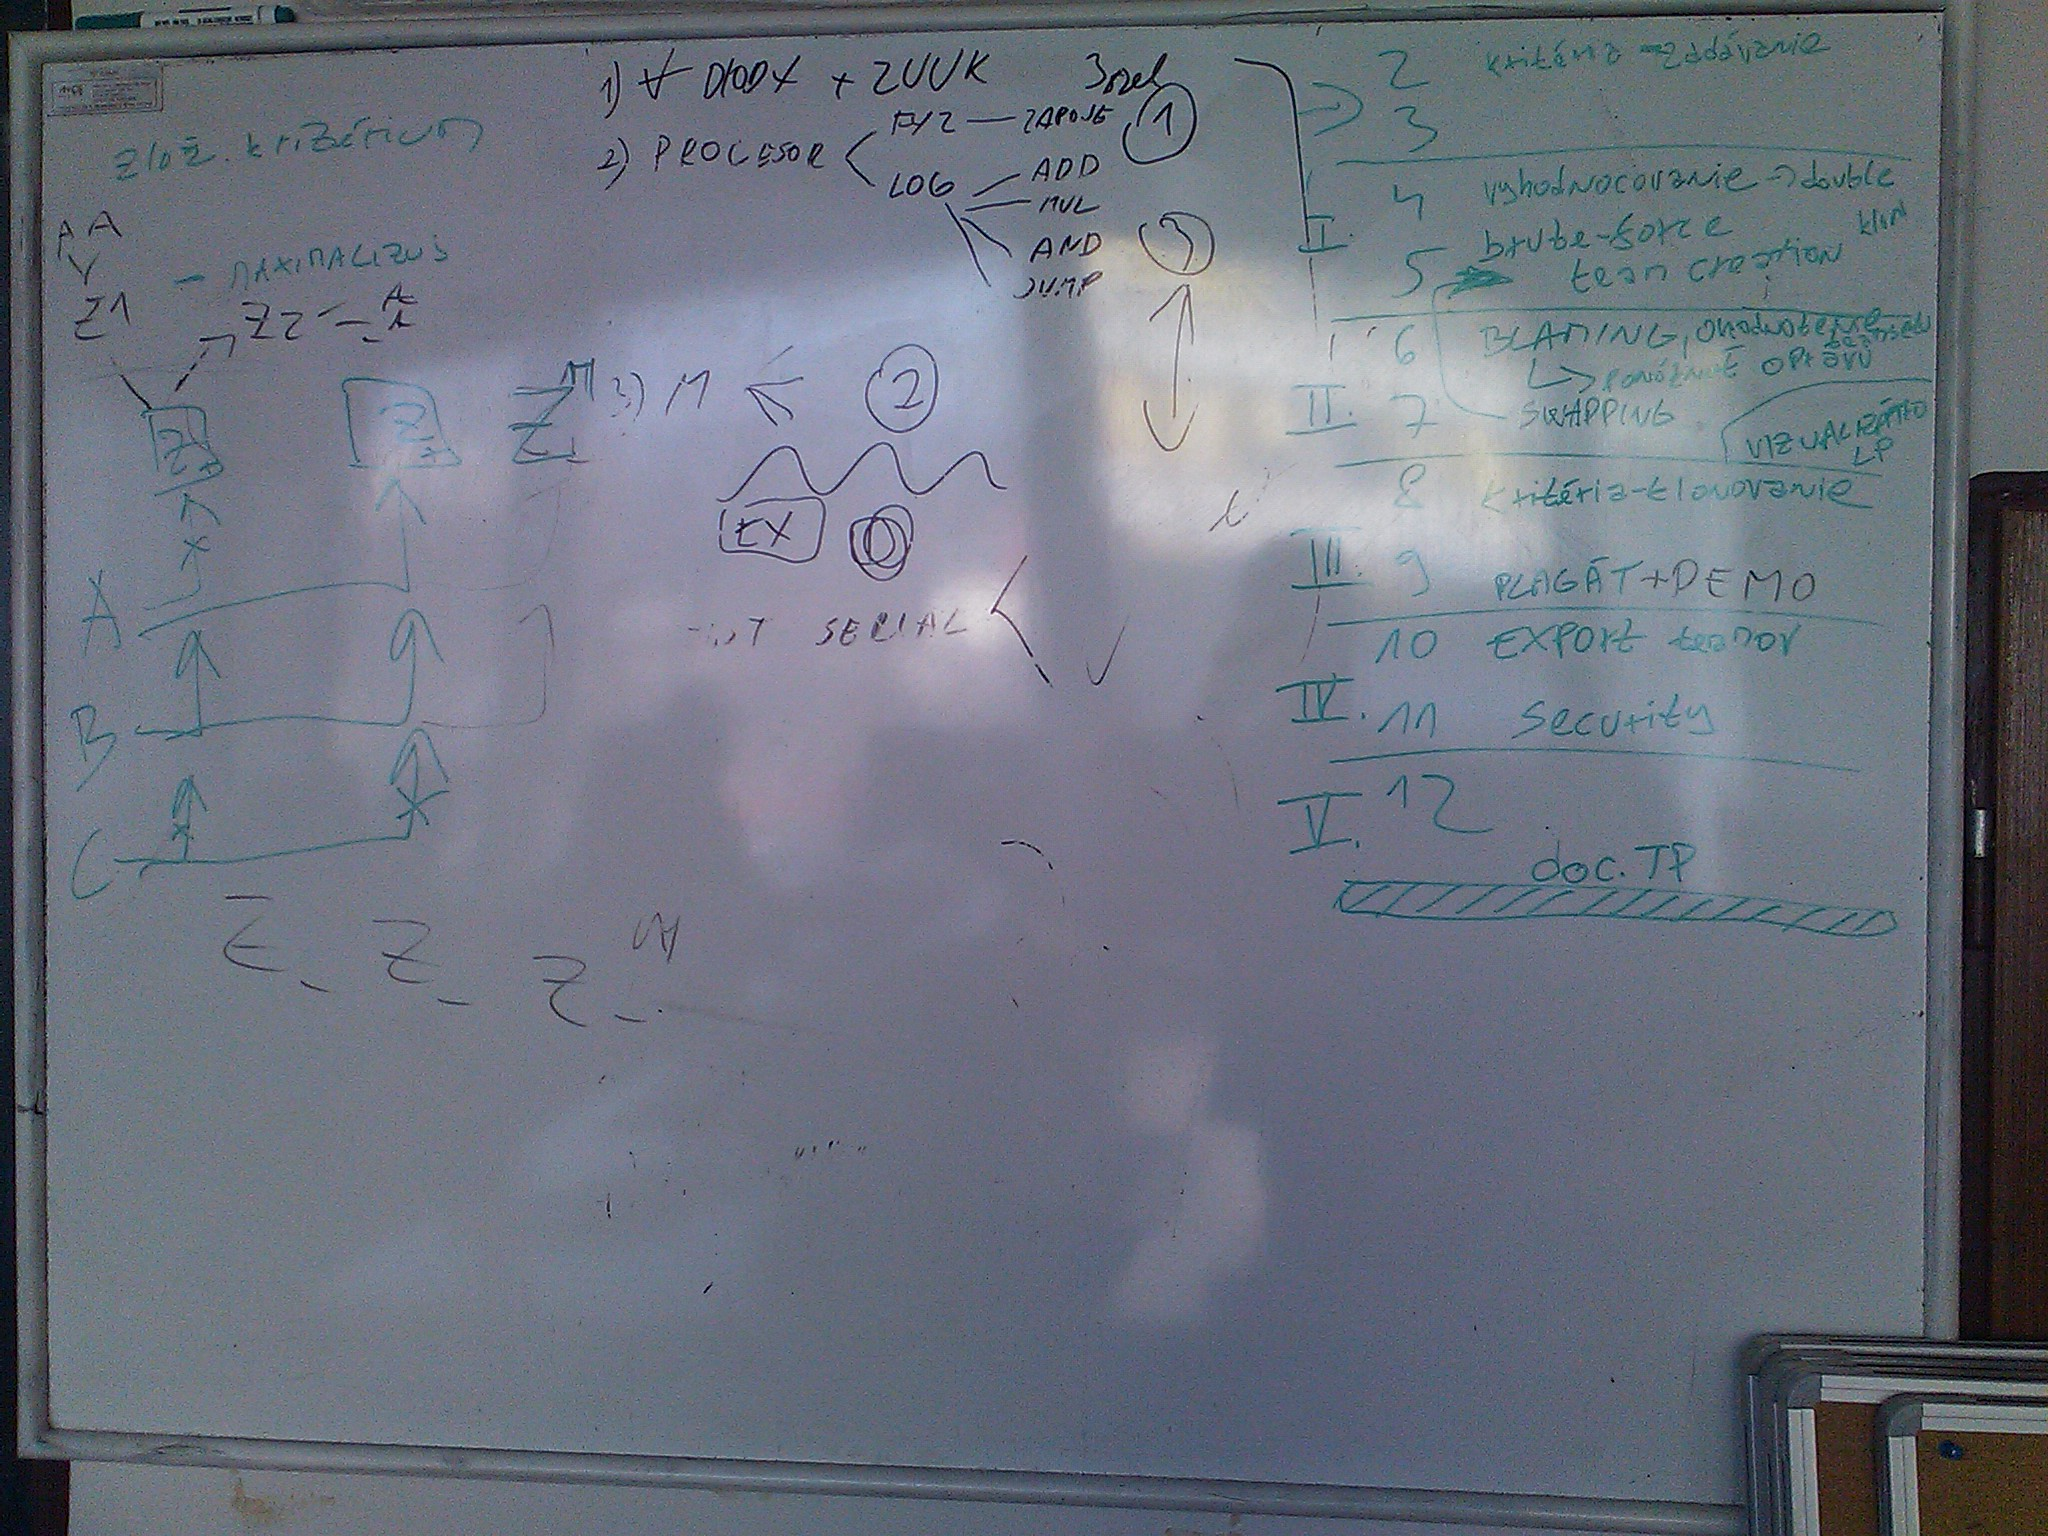 zlož. kritérium
A A
Z1
- MAXIMALIZUJ
Z2 -
Z+
Z+
Z
M
A
B
C
Z - Z - Z -
M
1) ∀ DIODY + ZVUK
2) PROCESOR
FYZ — ZAPOJE
LOG
ADD
MUL
AND
JUMP
1
3
3) M ←
2
EX
0
SERIAL
2 kritéria - zadávanie
3
I. 4 vyhodnocovanie → double
brute-force
klon
5 team creation
6 BLAMING, ohodnotenie
OPRAVU
II. 7 SWAPPING
VIZUALIZÁTO
LP
8 kritéria - klonovanie
III. 9 PLAGÁT + DEMO
10 EXPORT teamov
IV. 11 Security
V. 12
doc. TP